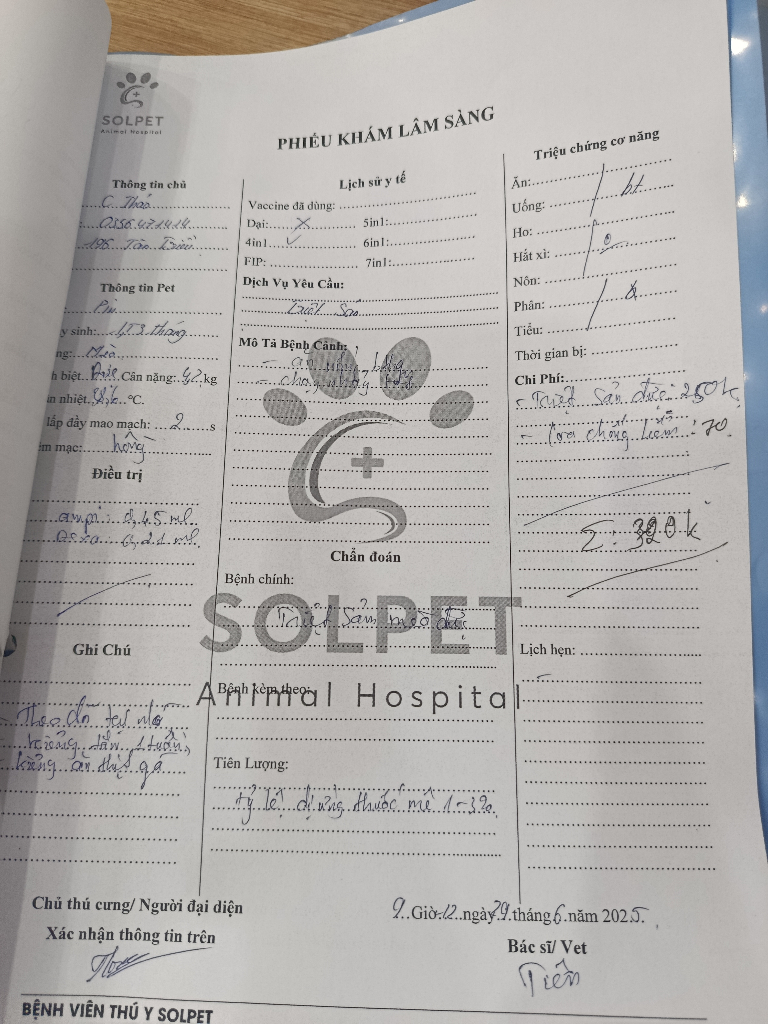 SOLPET
Animal Hospital
PHIẾU KHÁM LÂM SÀNG
Thông tin chủ
C Thảo
0356471414
Thông tin Pet
Pin
y sinh: 1T3 tháng
ng: Mèo
h biệt: Đực Cân nặng: 4,2 kg
n nhiệt: °C.
lấp đầy mao mạch: 2 s
êm mạc: hồng
Điều trị
ampi: 0,45 ml
0,21 ml
Ghi Chú
- Theo dõi tại nhà,
kiêng tắm 1 tuần,
- kiêng ăn thịt gà
Lịch sử y tế
Vaccine đã dùng:
Dại: X 5in1:
4in1 ✓ 6in1:
FIP: 7in1:
Dịch Vụ Yêu Cầu:
Triệt Sản
Mô Tả Bệnh Cảnh:
- ăn uống bt
Chẩn đoán
Bệnh chính:
Triệt sản mèo đực
SOLPET
Animal Hospital
Bệnh kèm theo:
Tiên Lượng:
tỷ lệ dị ứng thuốc mê 1-3%
Triệu chứng cơ năng
Ăn:
Uống: bt
Ho:
Hắt xì:
Nôn:
Phân:
Tiểu:
Thời gian bị:
Chi Phí:
- Triệt sản đực: 250k
- loa chống liếm: 70
Σ: 320k
Lịch hẹn:
Chủ thú cưng/ Người đại diện
Xác nhận thông tin trên
9 Giờ 12 ngày 29 tháng 6 năm 2025
Bác sĩ/ Vet
Tiến
BỆNH VIỆN THÚ Y SOLPET